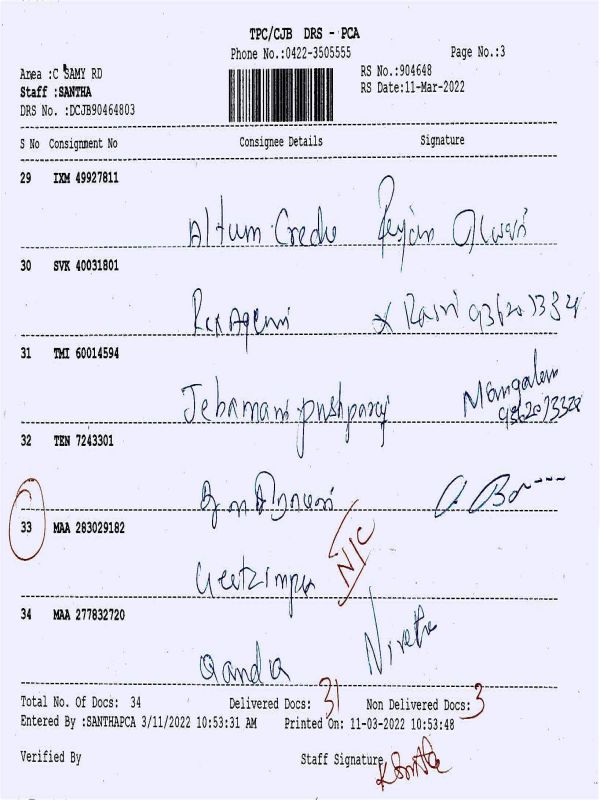 TPC/CJB DRS - PCA
Phone No.:0422-3505555
Page No.:3
Area :C SAMY RD
RS No.:904648
Staff :SANTHA
RS Date:11-Mar-2022
DRS No. :DCJB90464803
S No Consignment No Consignee Details Signature
29 IXM 49927811
Altum Credo
30 SVK 40031801
31 TMI 60014594
Jebamani pushparaj Mangalam
32 TEN 7243301
33 MAA 283029182
N/C
34 MAA 277832720
Total No. Of Docs: 34 Delivered Docs: 31 Non Delivered Docs: 3
Entered By :SANTHAPCA 3/11/2022 10:53:31 AM Printed On: 11-03-2022 10:53:48
Verified By Staff Signature